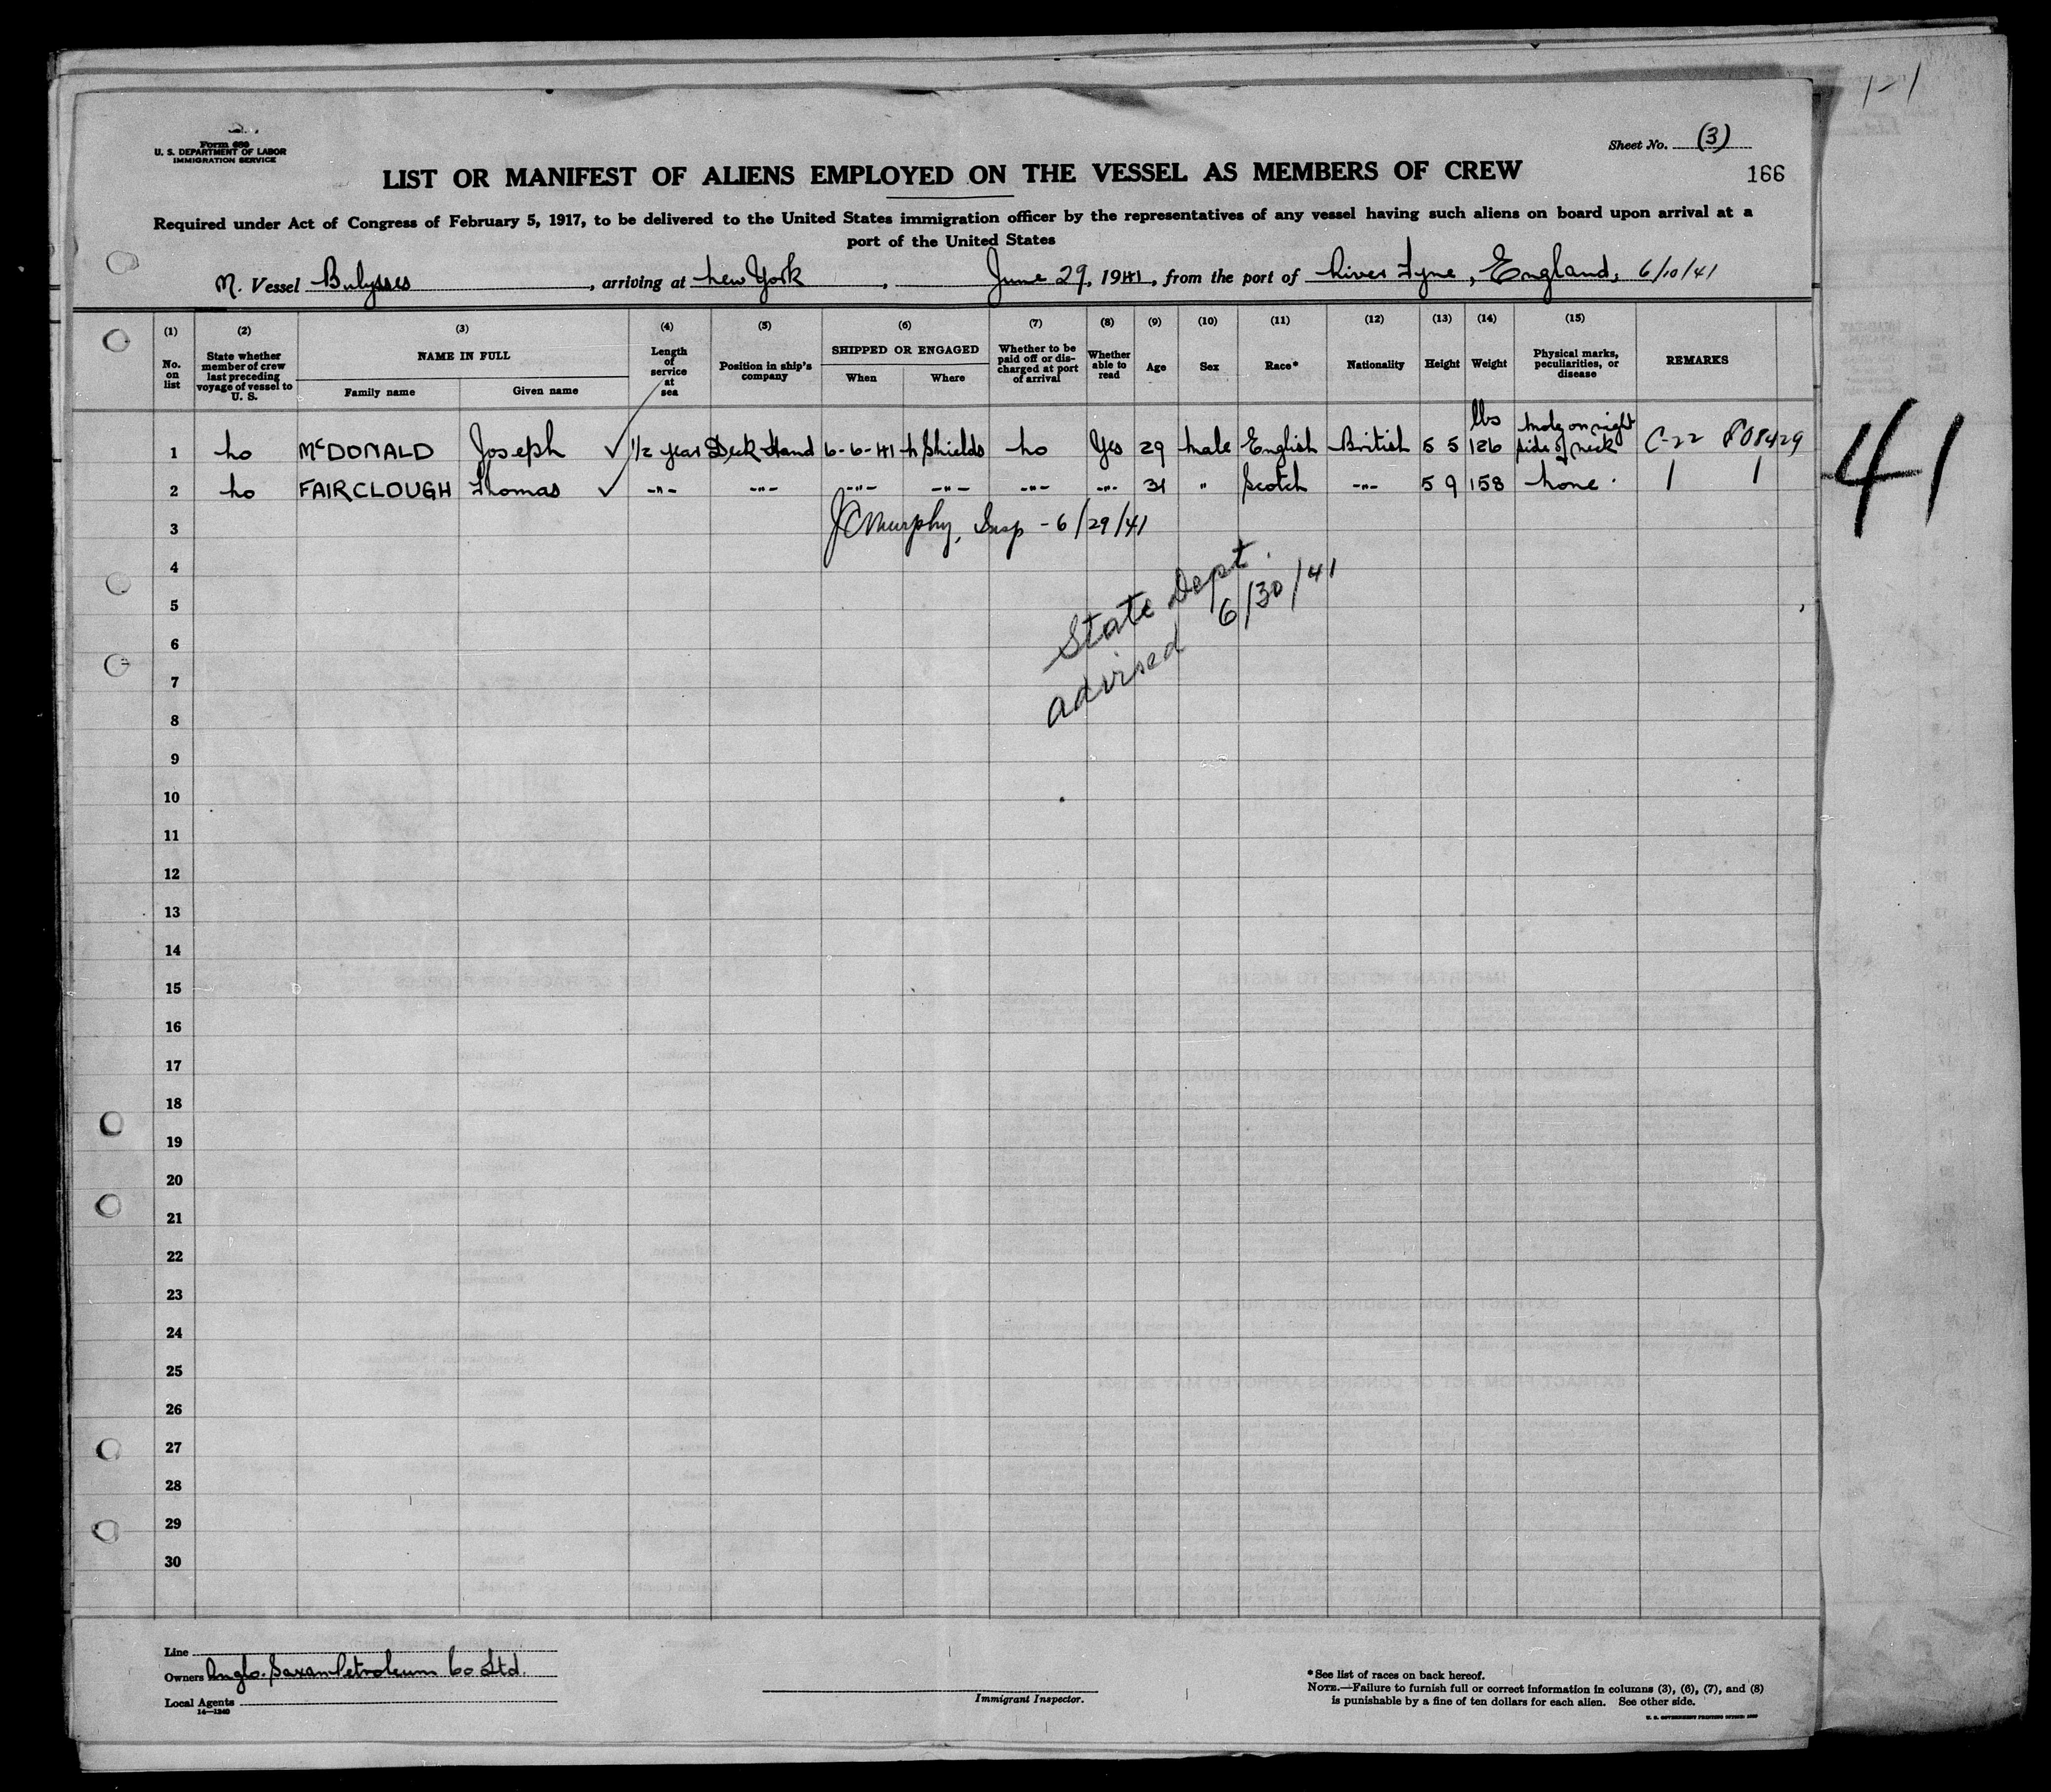 1-1
Form 680
U. S. DEPARTMENT OF LABOR
IMMIGRATION SERVICE
Sheet No. (3)
LIST OR MANIFEST OF ALIENS EMPLOYED ON THE VESSEL AS MEMBERS OF CREW
166
Required under Act of Congress of February 5, 1917, to be delivered to the United States immigration officer by the representatives of any vessel having such aliens on board upon arrival at a
port of the United States
M. Vessel Bulysses, arriving at New York, June 29, 1941, from the port of River Tyne, England, 6/10/41
(1) (2) (3) (4) (5) (6) (7) (8) (9) (10) (11) (12) (13) (14) (15)
No. on list State whether member of crew last preceding voyage of vessel to U. S. NAME IN FULL Family name Given name Length of service at sea Position in ship's company SHIPPED OR ENGAGED When Where Whether to be paid off or discharged at port of arrival Whether able to read Age Sex Race* Nationality Height Weight Physical marks, peculiarities, or disease REMARKS
1 No McDONALD Joseph ✓ 1/2 year Deck Hand 6-6-41 N Shields No Yes 29 Male English British 5 5 lbs 126 Mole on right side of neck C-22 808429
2 No FAIRCLOUGH Thomas ✓ -"- -"- -"- -"- -"- -"- 31 " Scotch -"- 5 9 158 None.
3 JC Murphy, Insp - 6/29/41
4
5
6
7
8
9
10
11
12
13
14
15
16
17
18
19
20
21
22
23
24
25
26
27
28
29
30
State Dept.
advised 6/30/41
41
Line
Owners Anglo-Saxon Petroleum Co Ltd.
Local Agents
14—1240
Immigrant Inspector.
*See list of races on back hereof.
NOTE.—Failure to furnish full or correct information in columns (3), (6), (7), and (8)
is punishable by a fine of ten dollars for each alien. See other side.